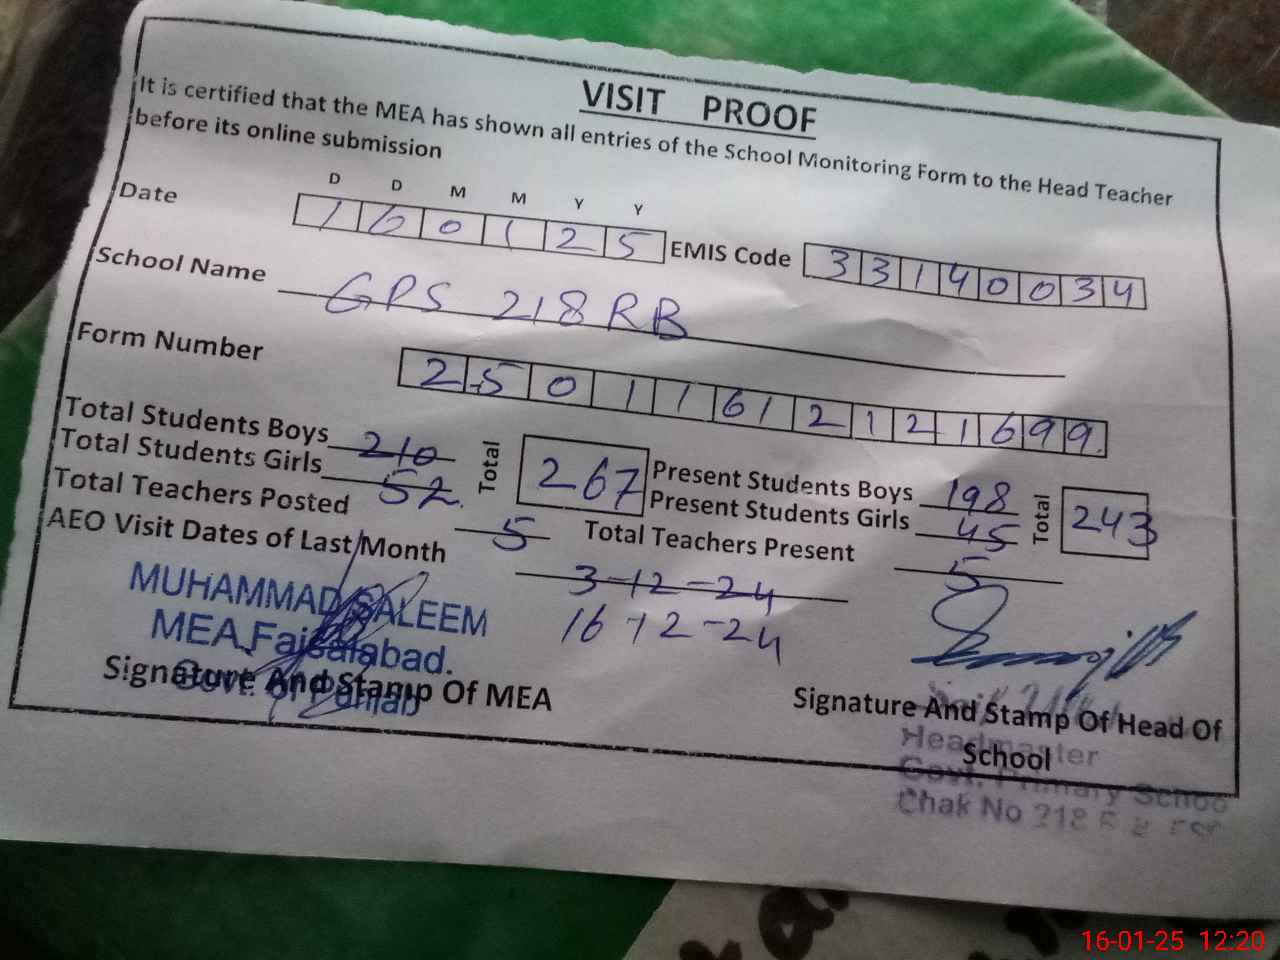 VISIT PROOF
It is certified that the MEA has shown all entries of the School Monitoring Form to the Head Teacher
before its online submission
D D M M Y Y
Date 160125 EMIS Code 33140034
School Name GPS 218 RB
Form Number 25011612121699
Total Students Boys 210 Total 267 Present Students Boys 198 Total 243
Total Students Girls 52 Present Students Girls 45
Total Teachers Posted 5 Total Teachers Present 5
AEO Visit Dates of Last Month 3-12-24
16-12-24
MUHAMMAD SALEEM
MEA, Faisalabad.
Govt. of Punjab
Signature And Stamp Of MEA
Signature And Stamp Of Head Of
School
Headmaster
Govt. Primary School
Chak No 218 R B
16-01-25 12:20